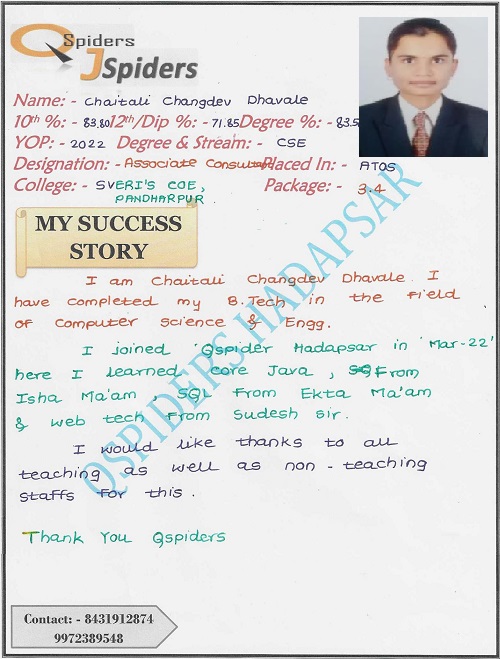 QSpiders
JSpiders
Name: - Chaitali Changdev Dhavale
10th %: - 83.80 12th/Dip %: - 71.85 Degree %: - 83.5
YOP: - 2022 Degree & Stream: - CSE
Designation: - Associate Consultant Placed In: - ATOS
College: - SVERI'S COE,
PANDHARPUR
Package: - 3.4
MY SUCCESS
STORY
I am Chaitali Changdev Dhavale. I
have completed my B.Tech in the field
of Computer Science & Engg.
I joined Qspider Hadapsar in 'Mar-22'
here I learned core Java, From
Isha Ma'am SQL From Ekta Ma'am
& web tech From Sudesh sir.
I would like thanks to all
teaching as well as non - teaching
staffs for this.
Thank You Qspiders
QSPIDERS HADAPSAR
Contact: - 8431912874
9972389548